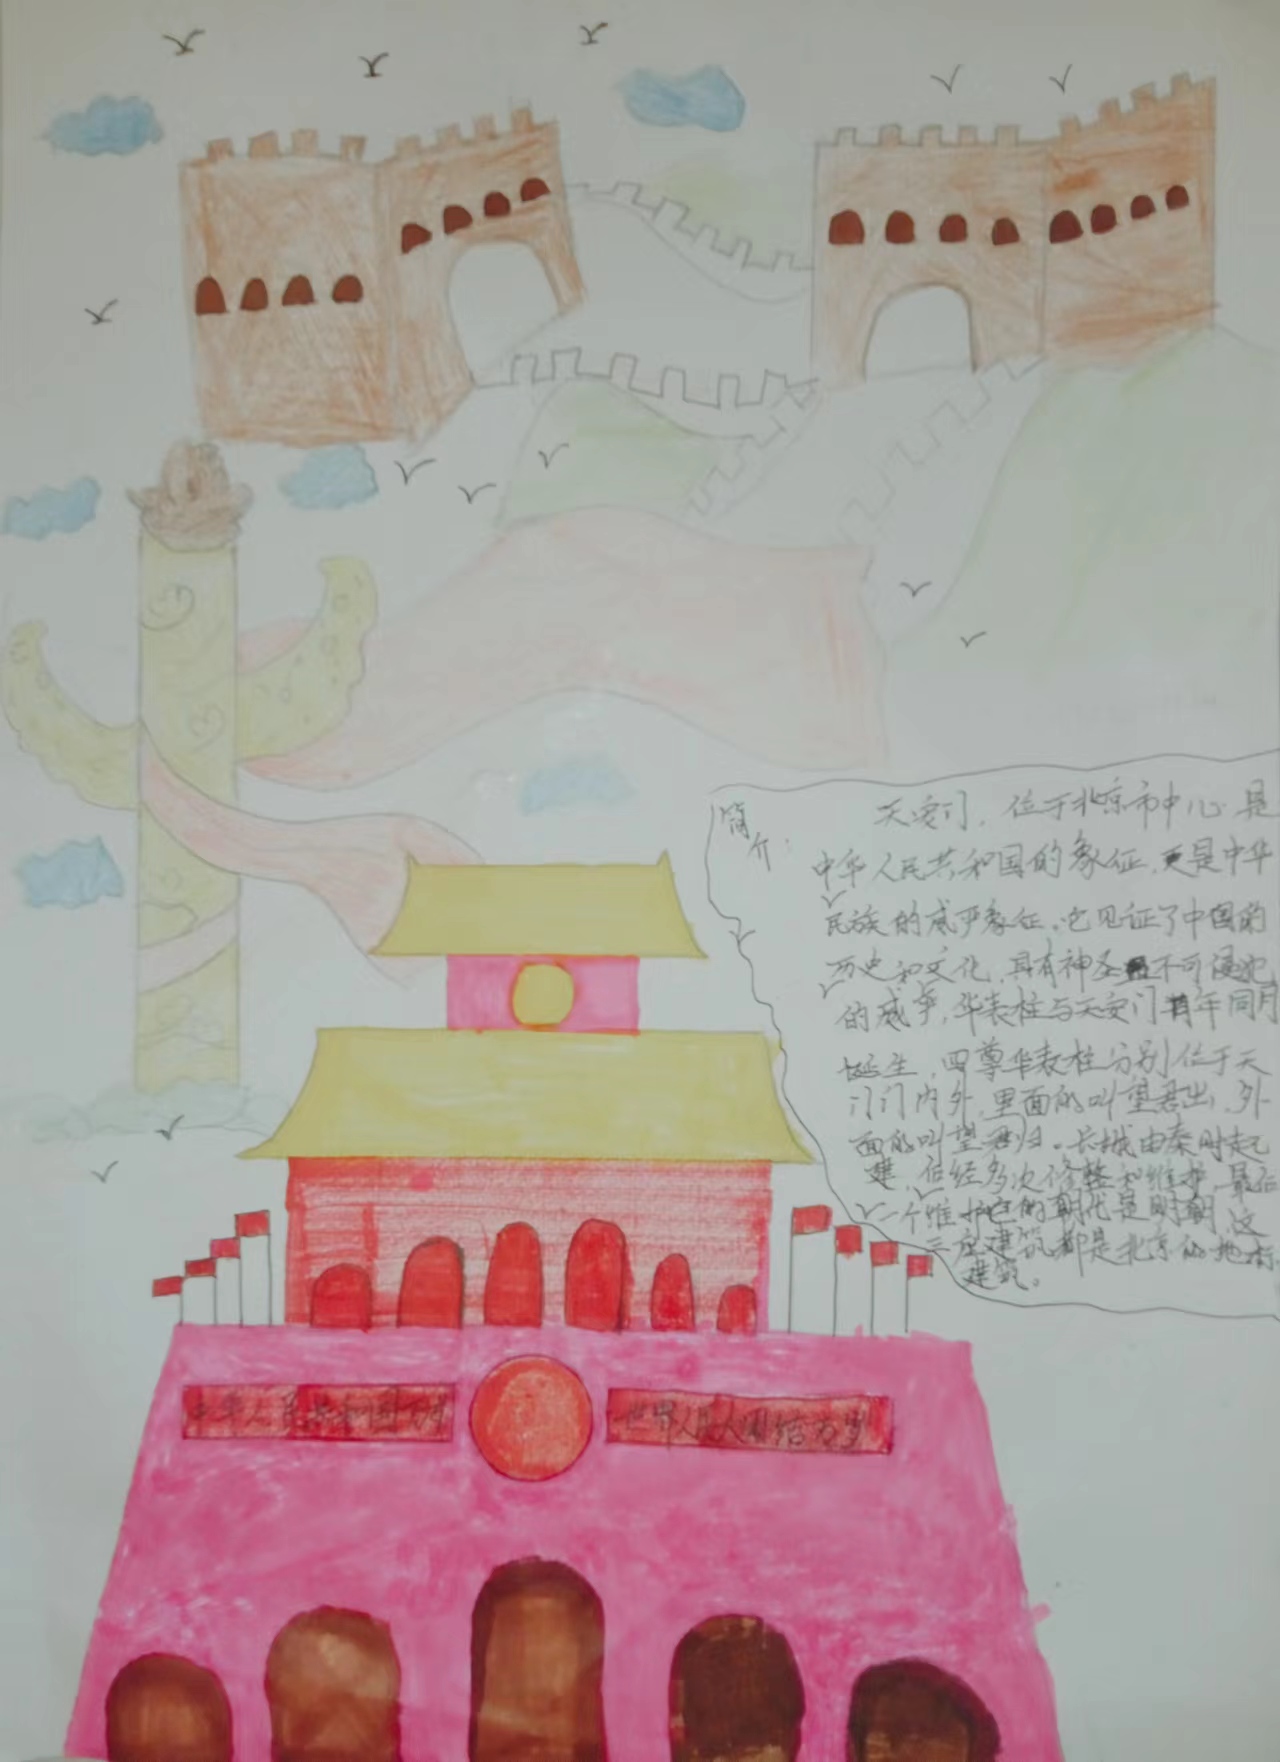 简介:
天安门，位于北京市中心是
中华人民共和国的象征，更是中华
民族的威严象征，它见证了中国的
历史和文化，具有神圣不可侵犯
的威严，华表柱与天安门年同月
诞生，四尊华表柱分别位于天
门门内外，里面的叫望君出，外
面的叫望君归。长城由秦时起
建，但经多次修整和维护，最后
一个维护它的朝代是明朝，这
三座建筑都是北京的地标
建筑。
中华人民共和国万岁
世界人民大团结万岁